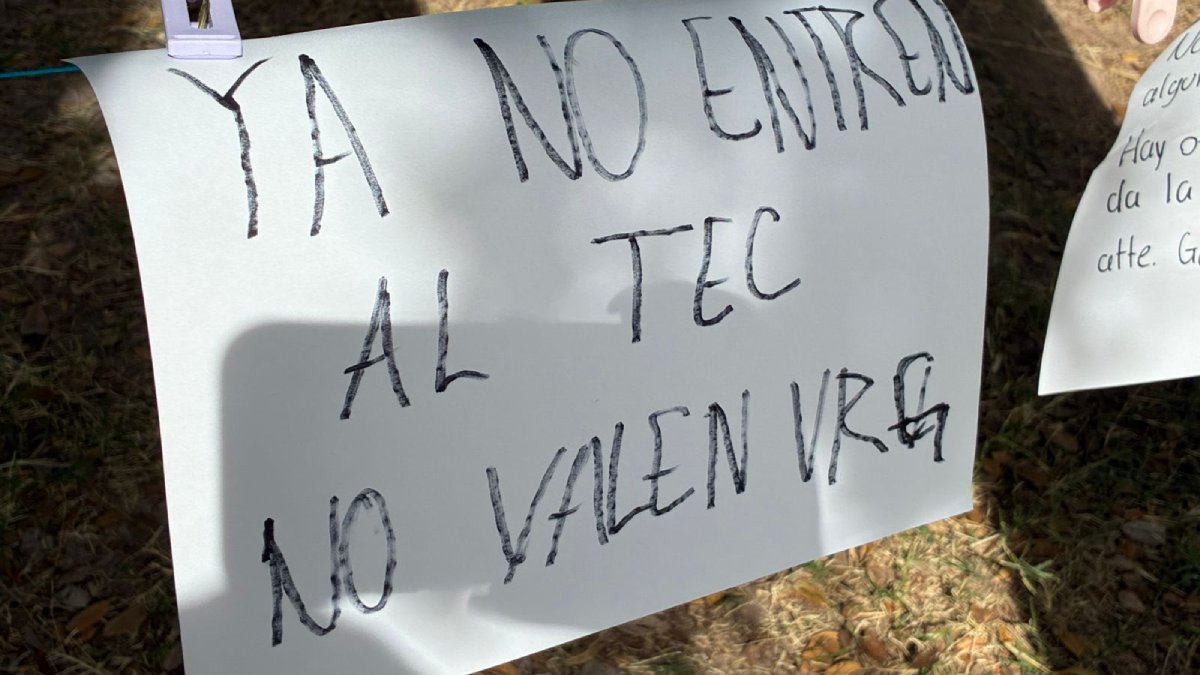 YA NO ENTREN
AL TEC
NO VALEN VRG
algu
Hay o
da la
atte. G